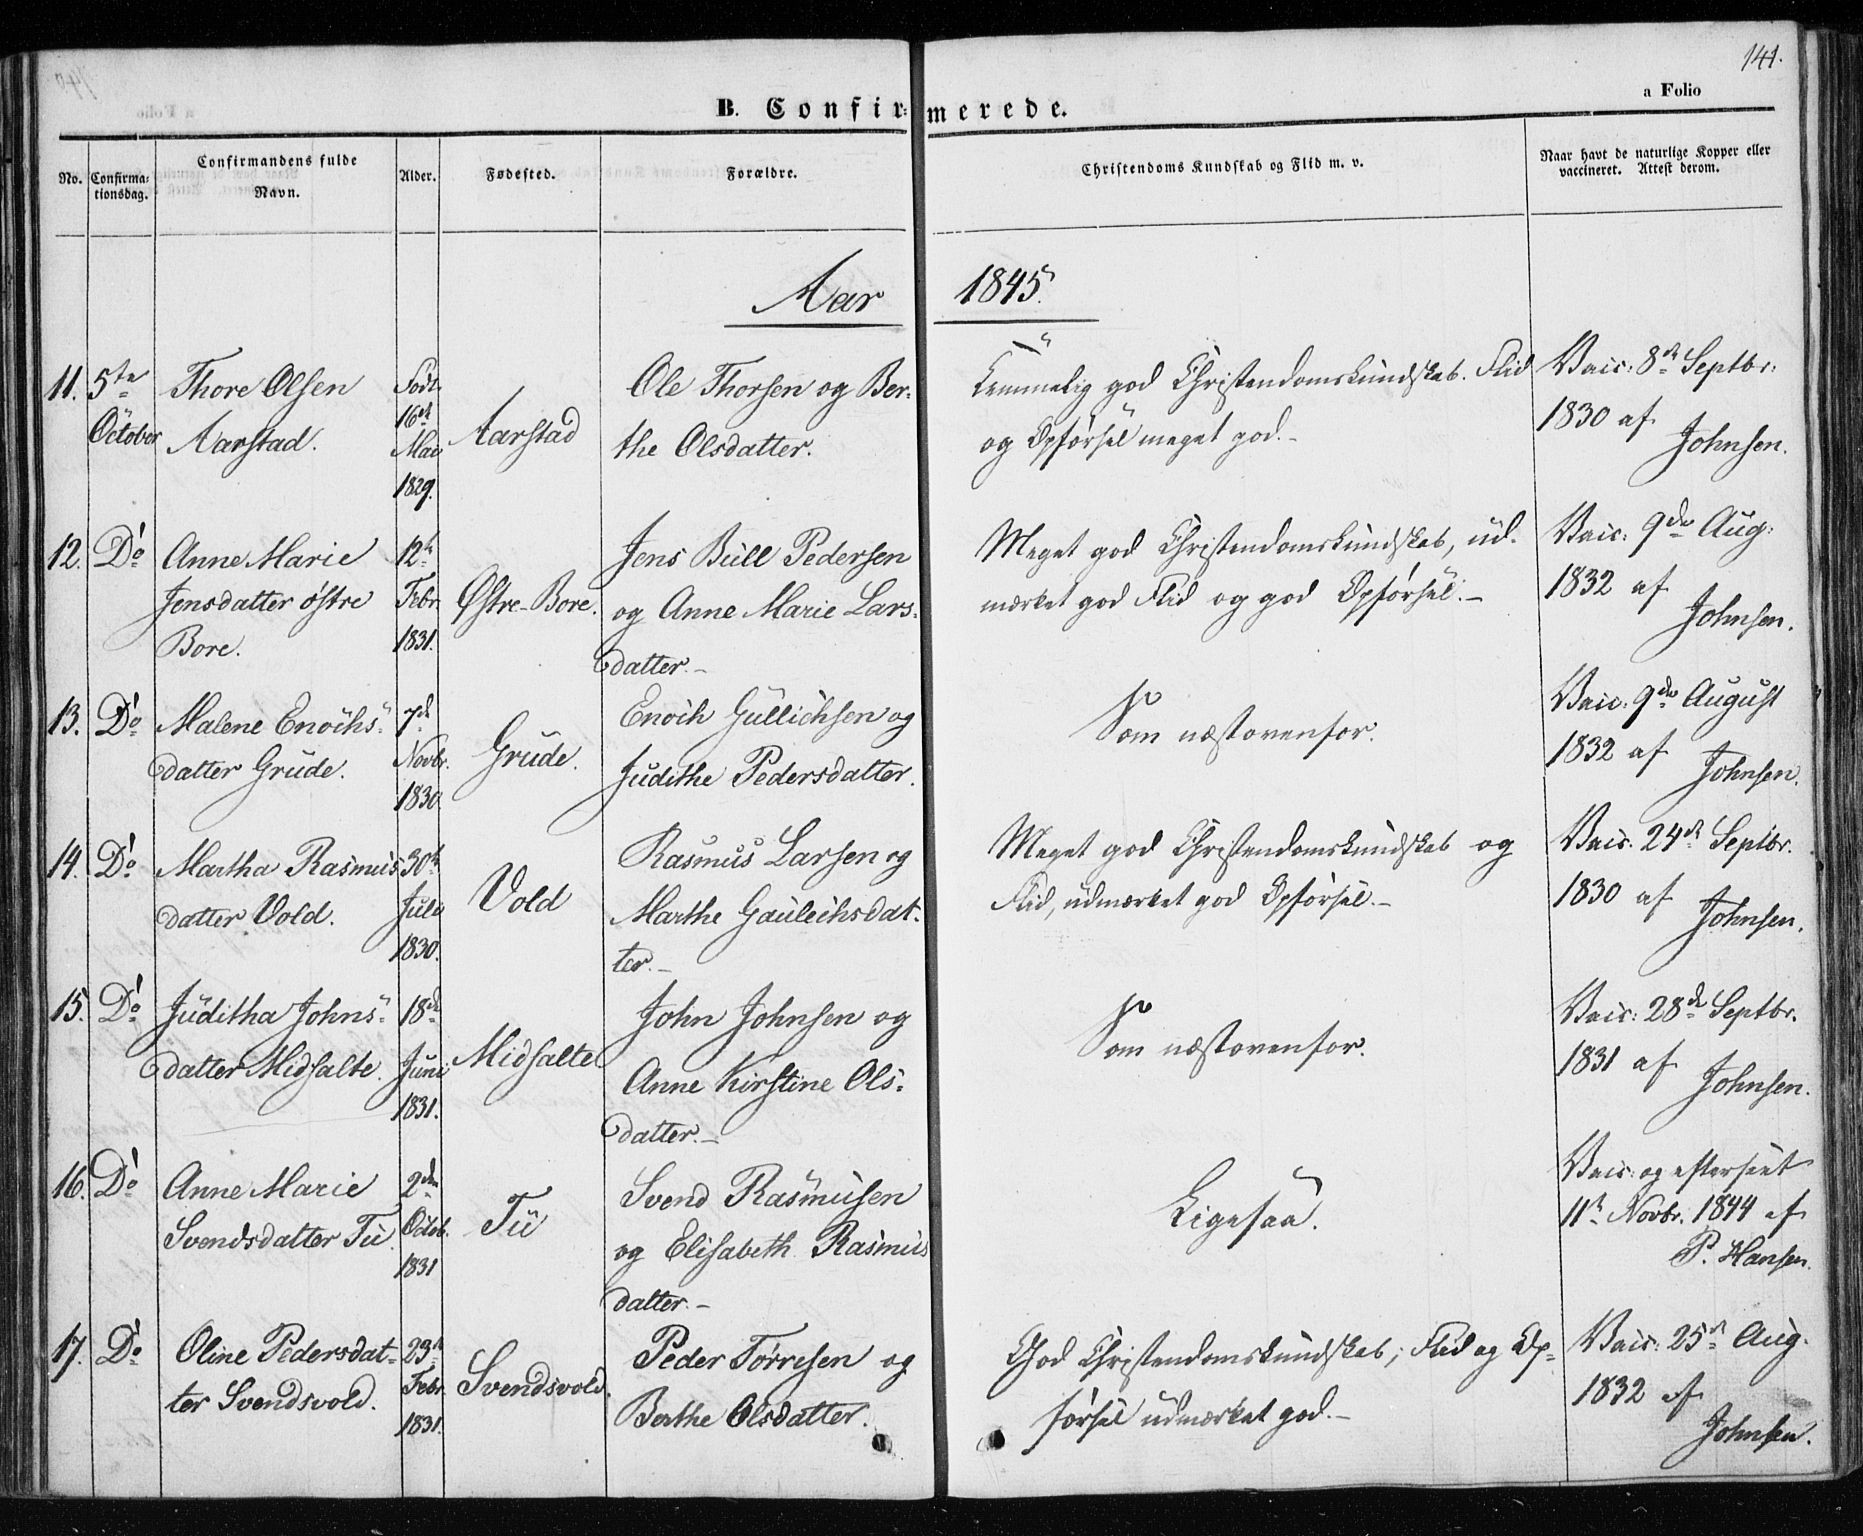 141.
a Folio
B. Confirmerede.
No.
Confirma-
tionsdag.
Confirmandens fulde
Navn.
Alder.
Fødested.
Forældre.
Christendoms Kundskab og Flid m. v.
Naar havt de naturlige Kopper eller
vaccineret. Attest derom.
Aar 1845.
11.
5te
October
Thore Olsen
Aarstad.
Født
16de
Mai
1829.
Aarstad
Ole Thorsen og Ber-
the Olsdatter.
Temmelig god Christendomskundskab. Flid
og Opførsel meget god.-
Vaic: 8de Septbr:
1830 af
Johnsen.
12.
Do
Anne Marie
Jensdatter østre
Bore.
12te
Febr.
1831.
Østre-Bore.
Jens Bull Pedersen
og Anne Marie Lars-
datter.-
Meget god Christendomskundskab, ud-
mærket god Flid og god Opførsel.-
Vaic: 9de Aug:
1832 af
Johnsen.
13.
Do
Malene Enochs-
datter Grude.
7de
Novbr.
1830.
Grude.
Enoch Gullichsen og
Judithe Pedersdatter.
Som næstovenfor.
Vaic: 9de August
1832 af
Johnsen.
14.
Do
Martha Rasmus
datter Vold.
30te
Juli
1830.
Vold
Rasmus Larsen og
Marthe Gaulichsdat-
ter.-
Meget god Christendomskundskab og
Flid, udmærket god Opførsel.-
Vaic: 24de Septbr.
1830 af
Johnsen.
15.
Do
Juditha Johns-
datter Midsalte.
18de
Juni
1831.
Midsalte
John Johnsen og
Anne Kirstine Ols-
datter.-
Som næstovenfor.
Vaic: 28de Septbr.
1831 af
Johnsen.
16.
Do
Anne Marie
Svendsdatter Tu.
2den
Octob.
1831
Tu
Svend Rasmusen
og Elisabeth Rasmus
datter.-
Ligesaa.
Vaic: og efterseet
11te Novbr. 1844 af
P. Hansen.
17.
Do
Oline Pedersdat-
ter Svendsvold.
23de
Febr.
1831.
Svendsvold.
Peder Tørresen og
Berthe Olsdatter.
God Christendomskundskab; Flid og Op-
førsel udmærket god.-
Vaic: 25de Aug.
1832 af
Johnsen.